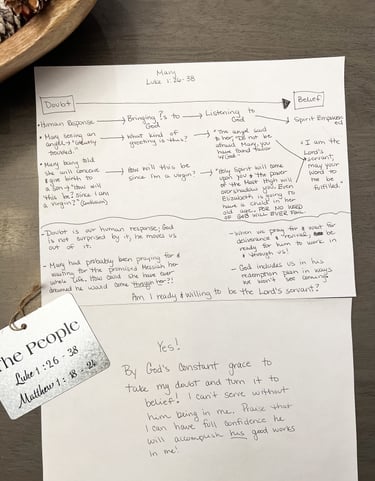 Mary
Luke 1:26-38
Doubt
Belief
• Human Response
Bringing ?s to God
Listening to God
Spirit Empowered
• Mary seeing an angel → "greatly troubled"
What kind of greeting is this?
• "The angel said to her, "Do not be afraid Mary, you have found favor w/God."
• Mary being told she will conceive & give birth to a son → "How will this be? since I am a virgin?"
How will this be since I'm a virgin?
"Holy Spirit will come upon you & the power of the Most High will overshadow you. Even Elizabeth is going to have a child in her old age. FOR NO WORD OF GOD WILL EVER FAIL.
"I am the Lord's servant, may your word to me be fulfilled."
- Doubt is our human response; God
is not surprised by it, he moves us
out of it.
- Mary had probably been praying for &
waiting for the promised Messiah her
whole life. How could she have ever
dreamed he would come through her?!
- When we pray for & wait for
deliverance & "revival" be
ready for him to work in
& through us!
- God includes us in his
redemption plan in ways
we won't see coming.
Am I ready & willing to be the Lord's servant?
The People
Luke 1:26-38
Matthew 1:18-24
Yes!
By God's constant grace to
take my doubt and turn it to
belief! I can't serve without
him being in me. Praise that
I can have full confidence he
will accomplish his good works
in me!